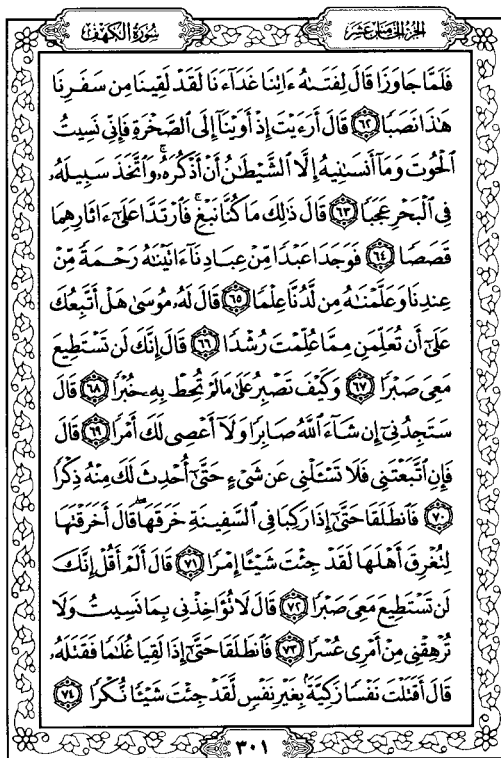 الجزء الخامس عشر
سورة الكهف
فَلَمَّا جَاوَزَا قَالَ لِفَتَىٰهُ ءَاتِنَا غَدَآءَنَا لَقَدْ لَقِينَا مِن سَفَرِنَا
هَٰذَا نَصَبًا ۝٦٢ قَالَ أَرَءَيْتَ إِذْ أَوَيْنَآ إِلَى ٱلصَّخْرَةِ فَإِنِّى نَسِيتُ
ٱلْحُوتَ وَمَآ أَنسَىٰنِيهُ إِلَّا ٱلشَّيْطَٰنُ أَنْ أَذْكُرَهُۥ ۚ وَٱتَّخَذَ سَبِيلَهُۥ
فِى ٱلْبَحْرِ عَجَبًا ۝٦٣ قَالَ ذَٰلِكَ مَا كُنَّا نَبْغِ ۚ فَٱرْتَدَّا عَلَىٰٓ ءَاثَارِهِمَا
قَصَصًا ۝٦٤ فَوَجَدَا عَبْدًا مِّنْ عِبَادِنَآ ءَاتَيْنَٰهُ رَحْمَةً مِّنْ
عِندِنَا وَعَلَّمْنَٰهُ مِن لَّدُنَّا عِلْمًا ۝٦٥ قَالَ لَهُۥ مُوسَىٰ هَلْ أَتَّبِعُكَ
عَلَىٰٓ أَن تُعَلِّمَنِ مِمَّا عُلِّمْتَ رُشْدًا ۝٦٦ قَالَ إِنَّكَ لَن تَسْتَطِيعَ
مَعِىَ صَبْرًا ۝٦٧ وَكَيْفَ تَصْبِرُ عَلَىٰ مَا لَمْ تُحِطْ بِهِۦ خُبْرًا ۝٦٨ قَالَ
سَتَجِدُنِىٓ إِن شَآءَ ٱللَّهُ صَابِرًا وَلَآ أَعْصِى لَكَ أَمْرًا ۝٦٩ قَالَ
فَإِنِ ٱتَّبَعْتَنِى فَلَا تَسْـَٔلْنِى عَن شَىْءٍ حَتَّىٰٓ أُحْدِثَ لَكَ مِنْهُ ذِكْرًا
۝٧٠ فَٱنطَلَقَا حَتَّىٰٓ إِذَا رَكِبَا فِى ٱلسَّفِينَةِ خَرَقَهَا ۖ قَالَ أَخَرَقْتَهَا
لِتُغْرِقَ أَهْلَهَا لَقَدْ جِئْتَ شَيْـًٔا إِمْرًا ۝٧١ قَالَ أَلَمْ أَقُلْ إِنَّكَ
لَن تَسْتَطِيعَ مَعِىَ صَبْرًا ۝٧٢ قَالَ لَا تُؤَاخِذْنِى بِمَا نَسِيتُ وَلَا
تُرْهِقْنِى مِنْ أَمْرِى عُسْرًا ۝٧٣ فَٱنطَلَقَا حَتَّىٰٓ إِذَا لَقِيَا غُلَٰمًا فَقَتَلَهُۥ
قَالَ أَقَتَلْتَ نَفْسًا زَكِيَّةًۢ بِغَيْرِ نَفْسٍ لَّقَدْ جِئْتَ شَيْـًٔا نُّكْرًا ۝٧٤
٣٠١